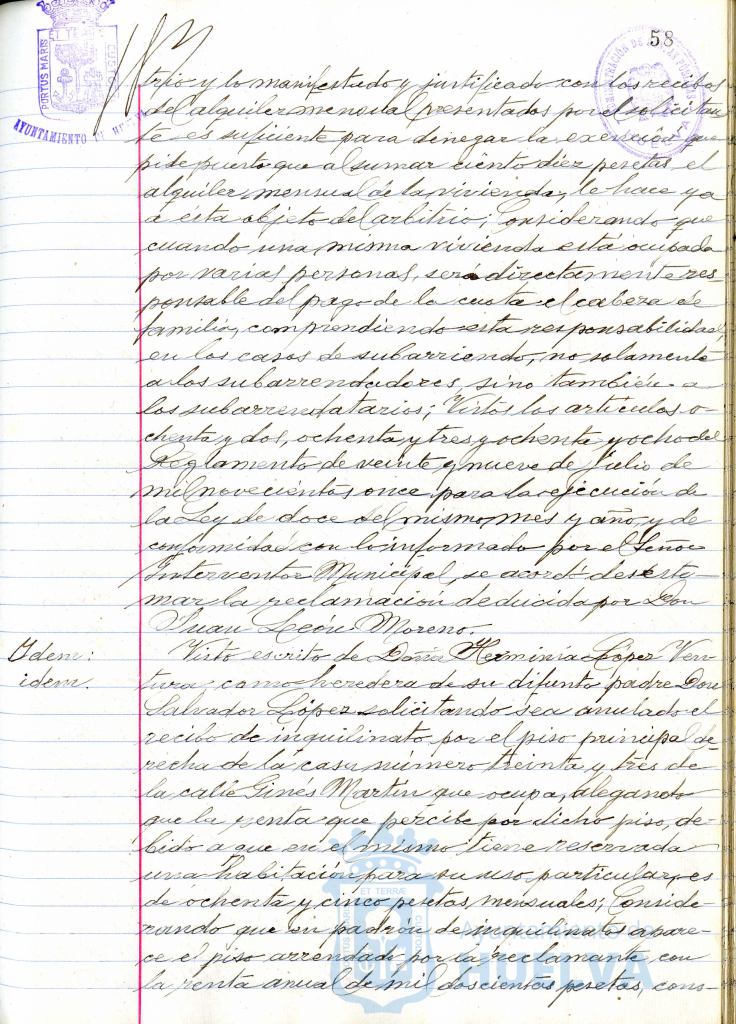 58
PORTUS MARIS ET TERRAE CUSTODIA
AYUNTAMIENTO DE HUELVA
trio y lo manifestado y justificado con los recibos
del alquiler mensual presentados por el solicitan-
te es suficiente para denegar la exención que
pide puesto que al sumar ciento diez pesetas el
alquiler mensual de la vivienda, le hace ya
a ésta objeto del arbitrio; Considerando que
cuando una misma vivienda está ocupada
por varias personas, será directamente res-
ponsable del pago de la cuota el cabeza de
familia, comprendiendo esta responsabilidad,
en los casos de subarriendo, no solamente
a los subarrendadores, sino también a
los subarrendatarios; Vistos los artículos o-
chenta y dos, ochenta y tres y ochenta y ocho del
Reglamento de veinte y nueve de Julio de
mil novecientos once para la ejecución de
la Ley de doce del mismo mes y año, y de
conformidad con lo informado por el Señor
Interventor Municipal, se acordó desesti-
mar la reclamación deducida por Don
Juan León Moreno.
Idem:
idem.
Visto escrito de Doña Herminia López Ven-
tura, como heredera de su difunto padre Don
Salvador López solicitando sea anulado el
recibo de inquilinato por el piso principal de-
recha de la casa número treinta y tres de
la calle Ginés Martín que ocupa, alegando
que la renta que percibe por dicho piso, de-
bido a que en el mismo tiene reservada
una habitación para su uso particular, es
de ochenta y cinco pesetas mensuales; Conside-
rando que en padrón de inquilinatos apare-
ce el piso arrendado por la reclamante con
la renta anual de mil doscientas pesetas, cons-
PORTUS MARIS ET TERRAE CUSTODIA
Ayuntamiento de
HUELVA